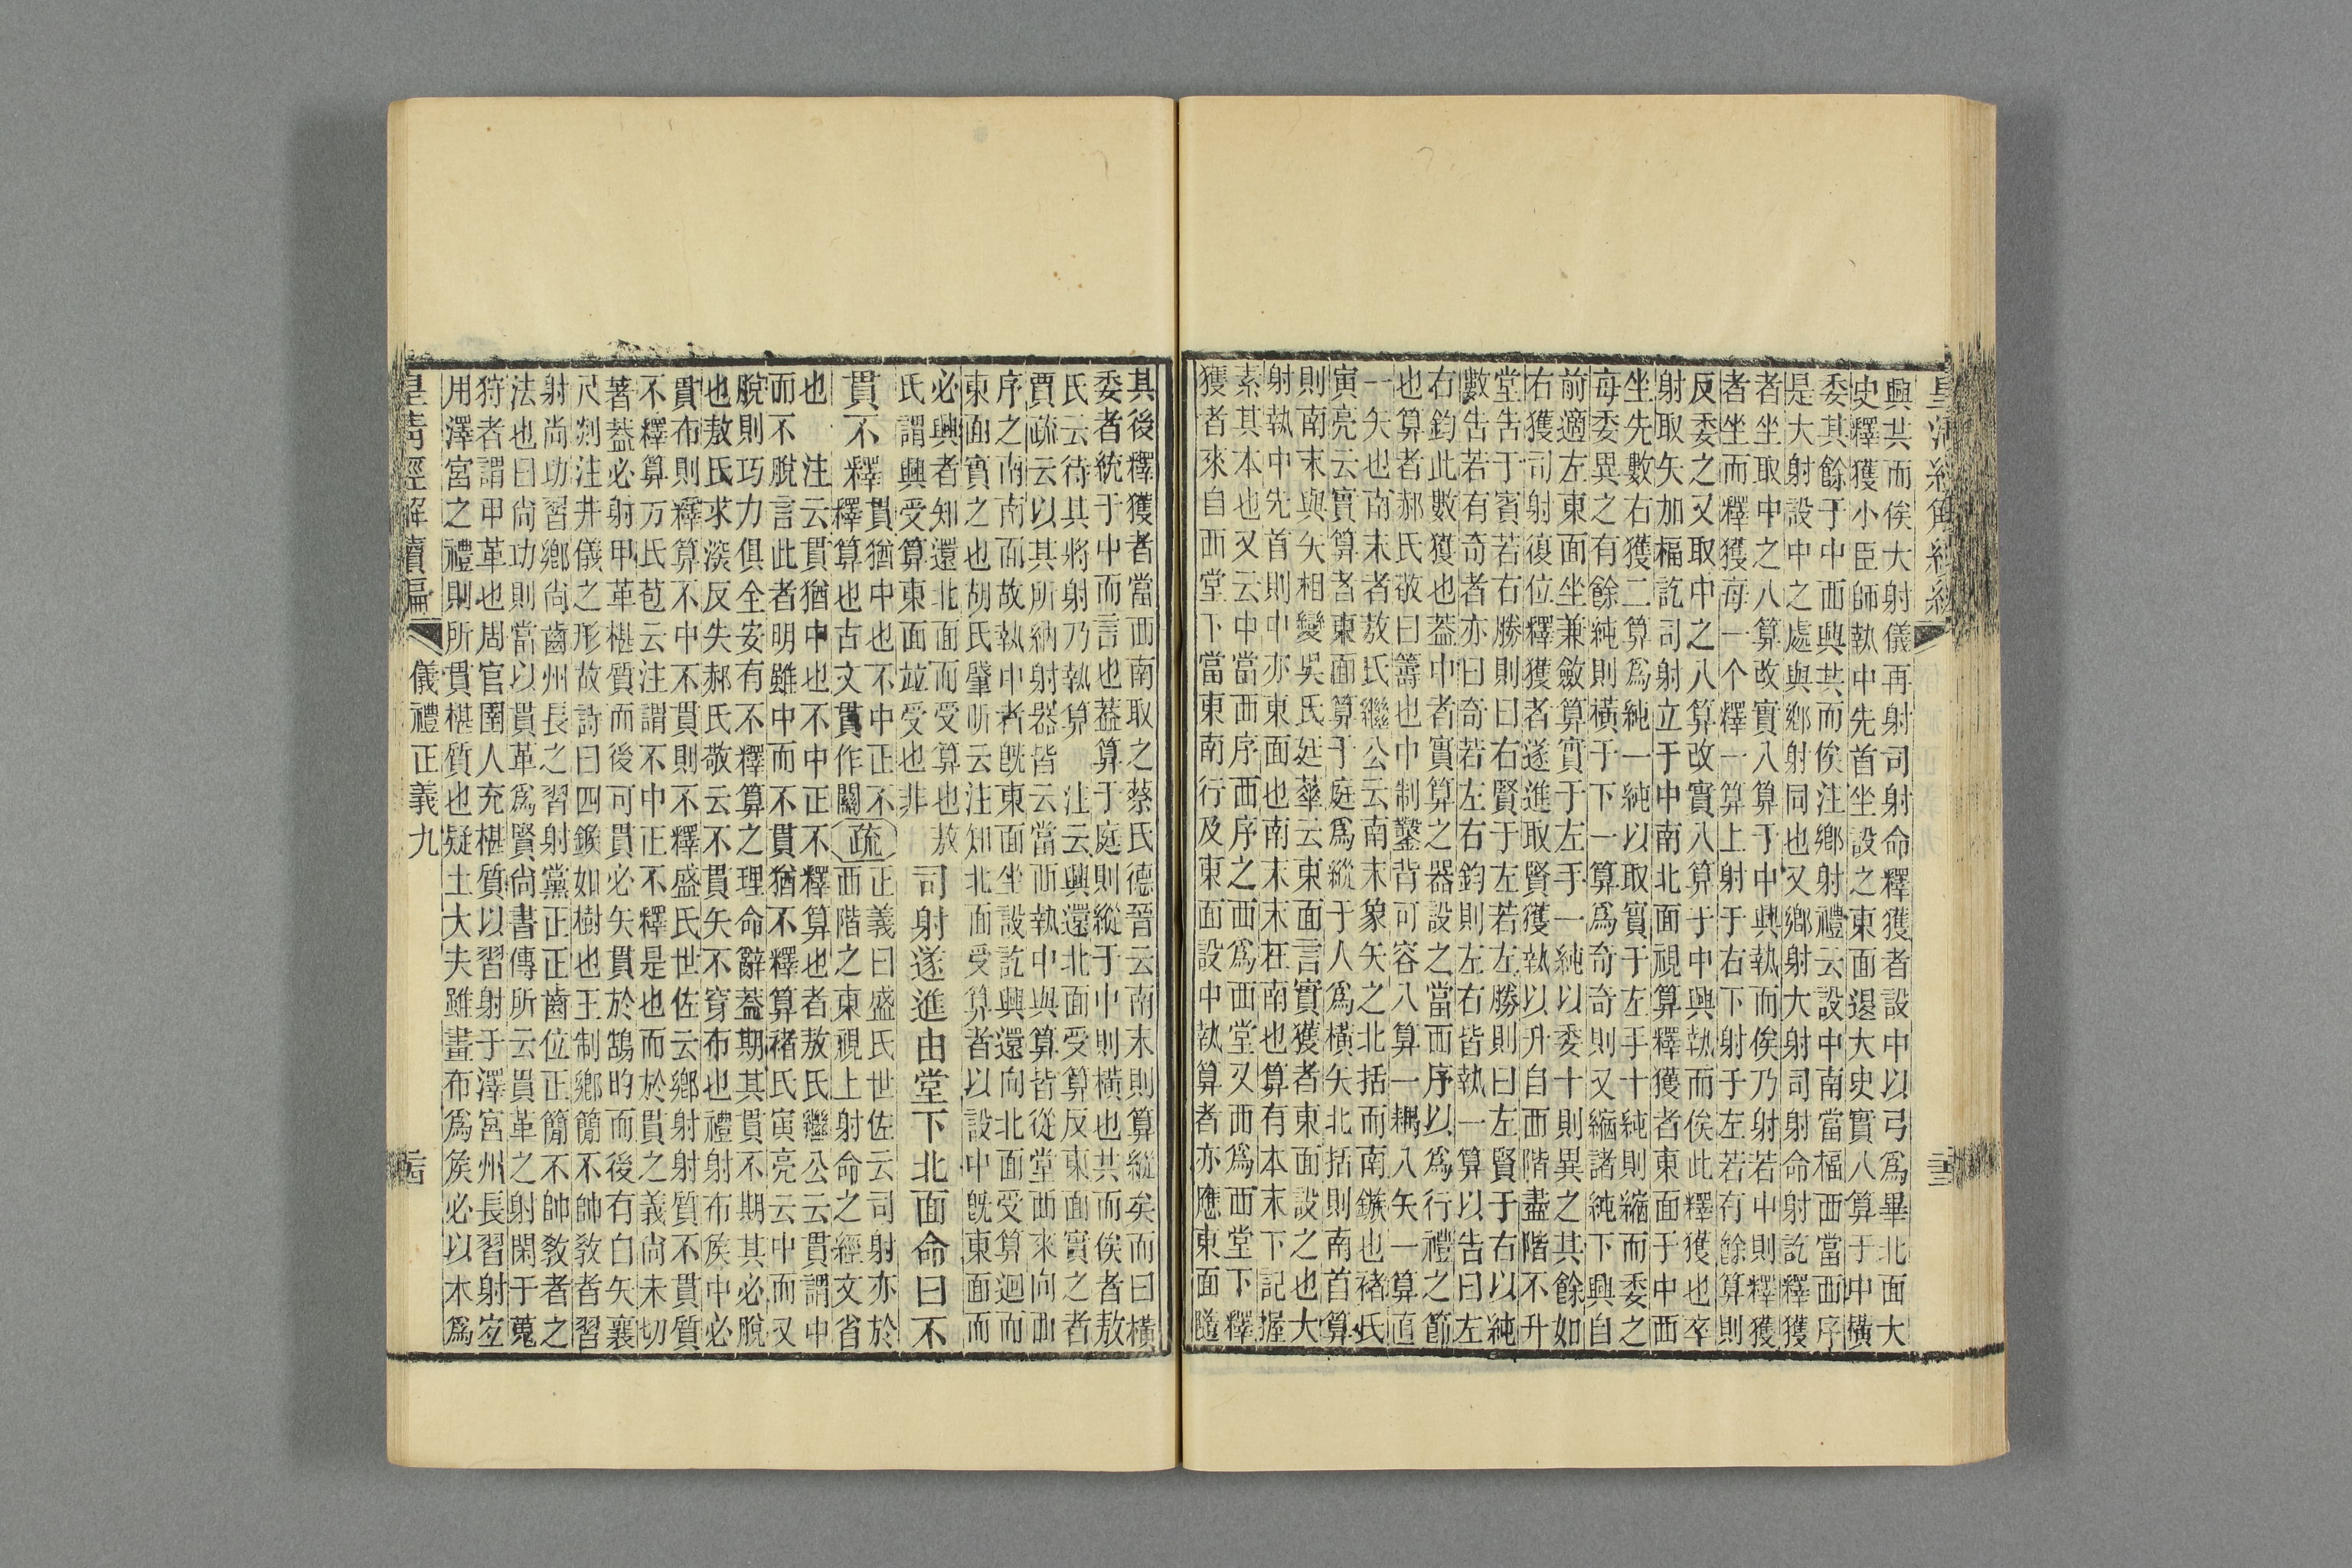 皇清經解續編
興共而俟大射儀再射司射命釋獲者設中以弓爲畢北面大
史釋獲小臣師執中先首坐設之東面退大史實八算于中橫
委其餘于中西興共而俟注鄉射禮云設中南當楅西當西序
是大射設中之處與鄉射同也又鄉射大射司射命射訖釋獲
者坐取中之八算改實八算于中興執而俟乃射若中則釋獲
者坐而釋獲每一个釋一算上射于右下射于左若有餘算則
反委之又取中之八算改實八算于中興執而俟此釋獲也卒
射取矢加楅訖司射立于中南北面視算釋獲者東面于中西
坐先數右獲二算爲純一純以取實于左手十純則縮而委之
每委異之有餘純則橫于下一算爲奇奇則又縮諸純下興自
前適左東面坐兼斂算實于左手一純以委十則異之其餘如
右獲司射復位釋獲者遂進取賢獲執以升自西階盡階不升
堂告于賓若右勝則曰右賢于左若左勝則曰左賢于右以純
數告若有奇者亦曰奇若左右鈞則左右皆執一算以告曰左
右鈞此數獲也蓋中者實算之器設之當西序以爲行禮之節
也算者郝氏敬曰籌也中制鑿背可容八算一耦八矢一算直
一矢也南末者敖氏繼公云南末象矢之北括而南鏃也褚氏
寅亮云實算者東面算于庭爲縱于人爲橫矢北括則南首算
則南末與矢相變吳氏廷華云東面言實獲者東面設之也大
射執中先首則中亦東面也南末末在南也算有本末下記握
素其本也又云中當西序西序之西爲西堂又西爲西堂下釋
獲者來自西堂下當東南行及東面設中執算者亦應東面隨
其後釋獲者當西南取之蔡氏德晉云南末則算縱矣而曰橫
委者統于中而言也蓋算于庭則縱于中則橫也共而俟者敖
氏云待其將射乃執算　注云興還北面受算反東面實之者
賈疏云以其所納射器皆云當西執中與算皆從堂西來向西
序之南南面故執中者旣東面坐設訖興還向北面受算迴而
東面實之也胡氏肇昕云注知北面受算者以設中旣東面而
必興者知還北面而受算也敖
氏謂興受算東面竝受也非
司射遂進由堂下北面命曰不
貫不釋
貫猶中也不中正不
釋算也古文貫作關
疏
正義曰盛氏世佐云司射亦於
西階之東視上射命之經文省
也　注云貫猶中也不中正不釋算也者敖氏繼公云貫謂中
而不脫言此者明雖中而不貫猶不釋算褚氏寅亮云中而又
脫則巧力俱全安有不釋算之理命辭蓋期其貫不期其必脫
也敖氏求深反失郝氏敬云不貫矢不穿布也禮射布侯中必
貫布則釋算不中不貫則不釋盛氏世佐云鄉射射質不貫質
不釋算万氏苞云注謂不中正不釋是也而於貫之義尚未切
著蓋必射甲革椹質而後可貫必矢貫於鵠旳而後有白矢襄
尺剡注井儀之形故詩曰四鍭如樹也王制鄉簡不帥敎者習
射尚功習鄉尚齒州長之習射黨正正齒位正簡不帥敎者之
法也曰尚功則當以貫革爲賢尚書傳所云貫革之射閑于蒐
狩者謂甲革也周官圉人充椹質以習射于澤宮州長習射宐
用澤宮之禮則所貫椹質也疑士大夫雖畫布爲矦必以木爲
皇清經解續編　儀禮正義九